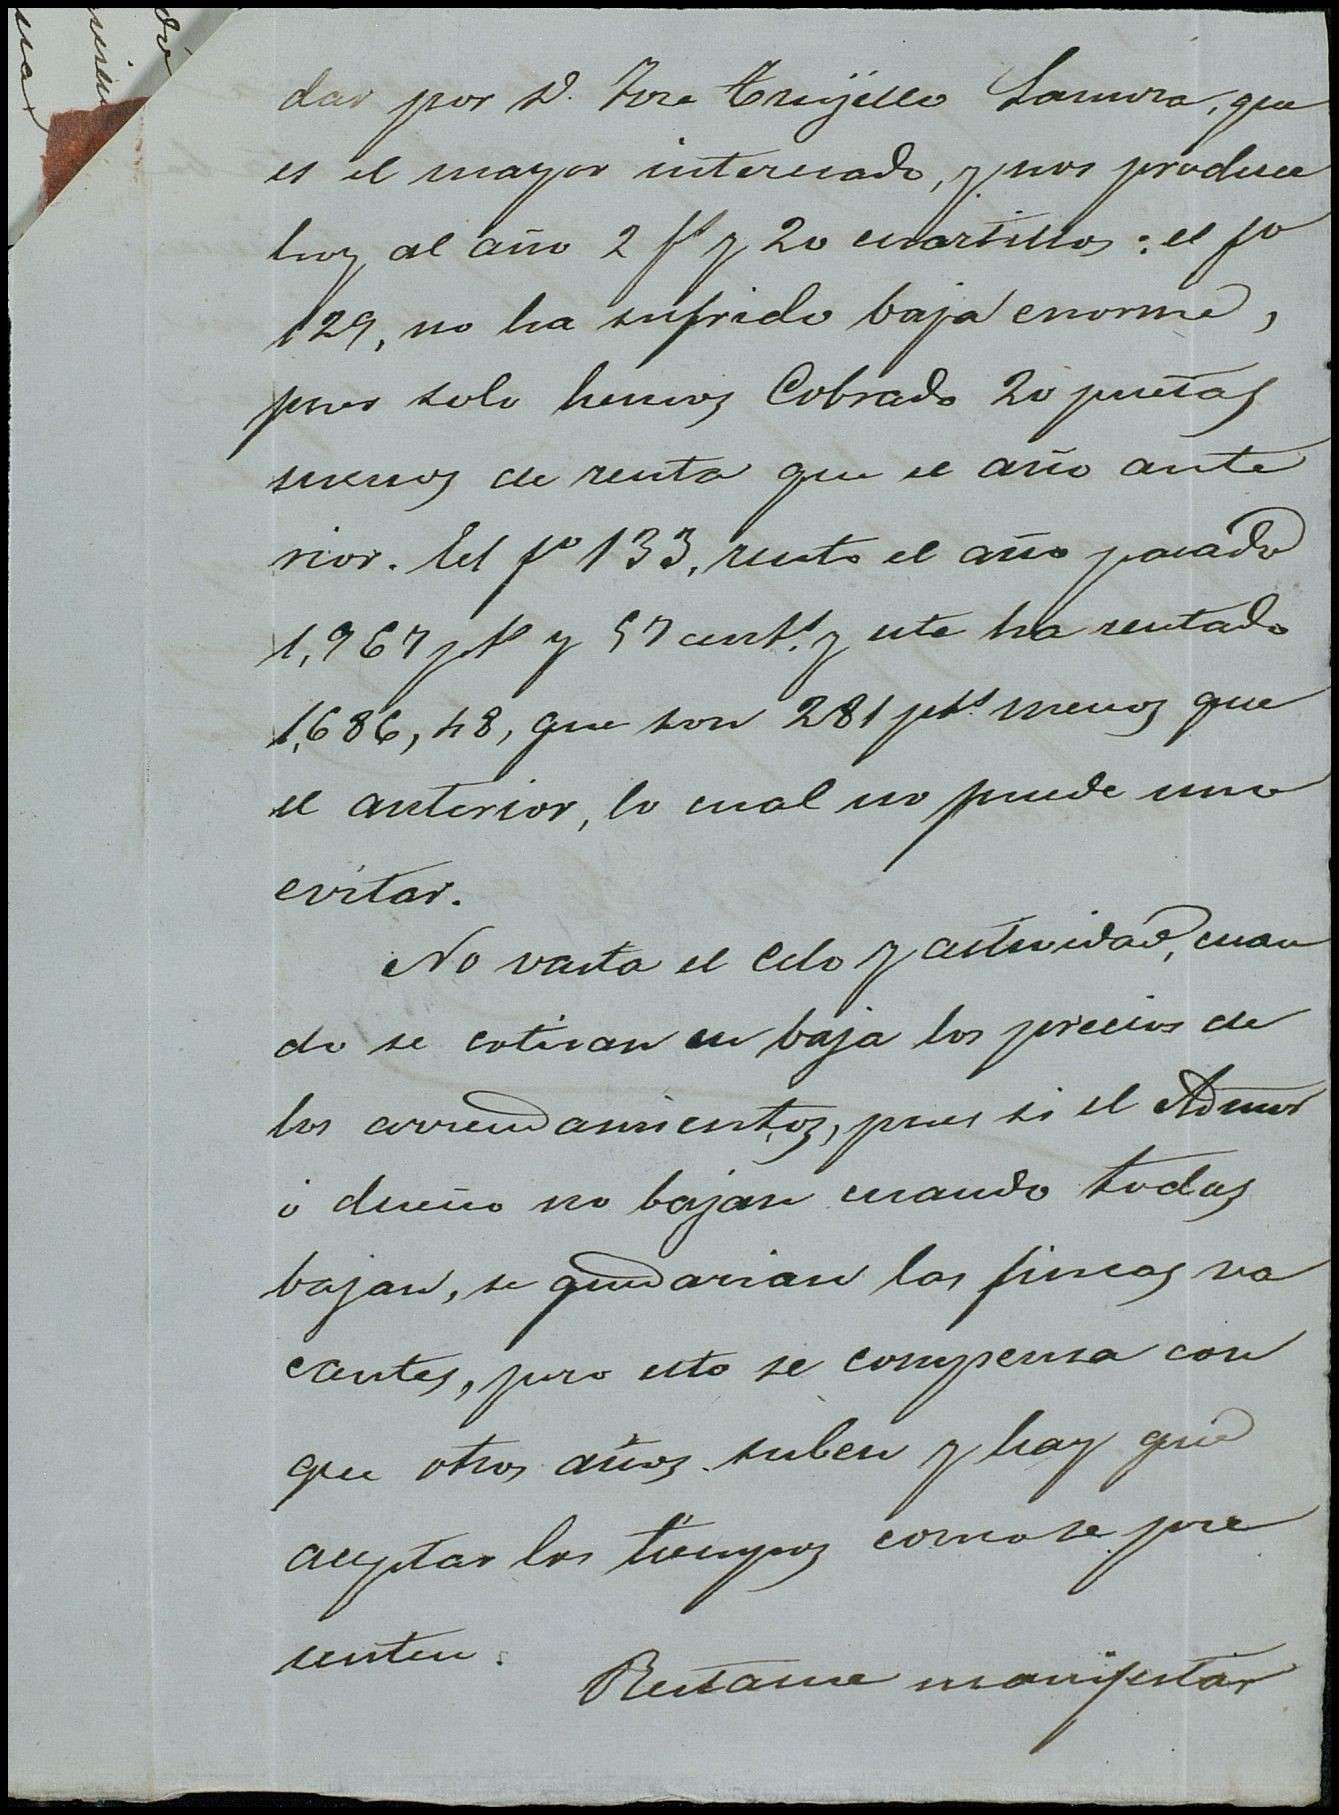 dar por D. Jose Trujillo Lamora, que
es el mayor interesado, y nos produce
hoy al año 2 fs y 20 cuartillos: el fo
129, no ha sufrido baja enorme,
pues solo hemos Cobrado 20 pesetas
menos de renta que el año ante
rior. El fo 133, rento el año pasado
1,967 pts y 57 cents. y este ha rentado
1,686,48, que son 281 pts. menos que
el anterior, lo cual no puede uno
evitar.
No vasta el Celo y actividad, cuan
do se cotizan en baja los precios de
los arrendamientos, pues si el Admor
ó dueño no bajan cuando todos
bajan, se quedarian las fincas va
cantes, pero esto se compensa con
que otros años suben y hay que
aceptar los tiempos como se pre
senten.
Restame manifestar